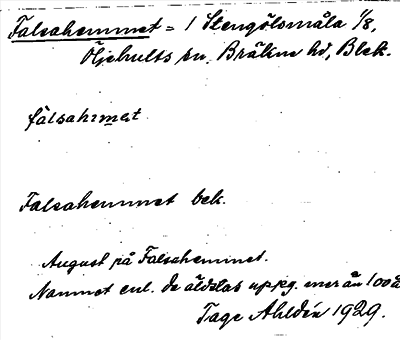 Falsahemmet = 1 Stengölsmåla 1/8,
Öljehults sn. Bräkne hd, Blek.
fálsahɪmet
Falsahemmet bek.
August på Falsahemmet.
Namnet enl. de äldstas uppg. mer än 100 å
Tage Ahldén 1929.